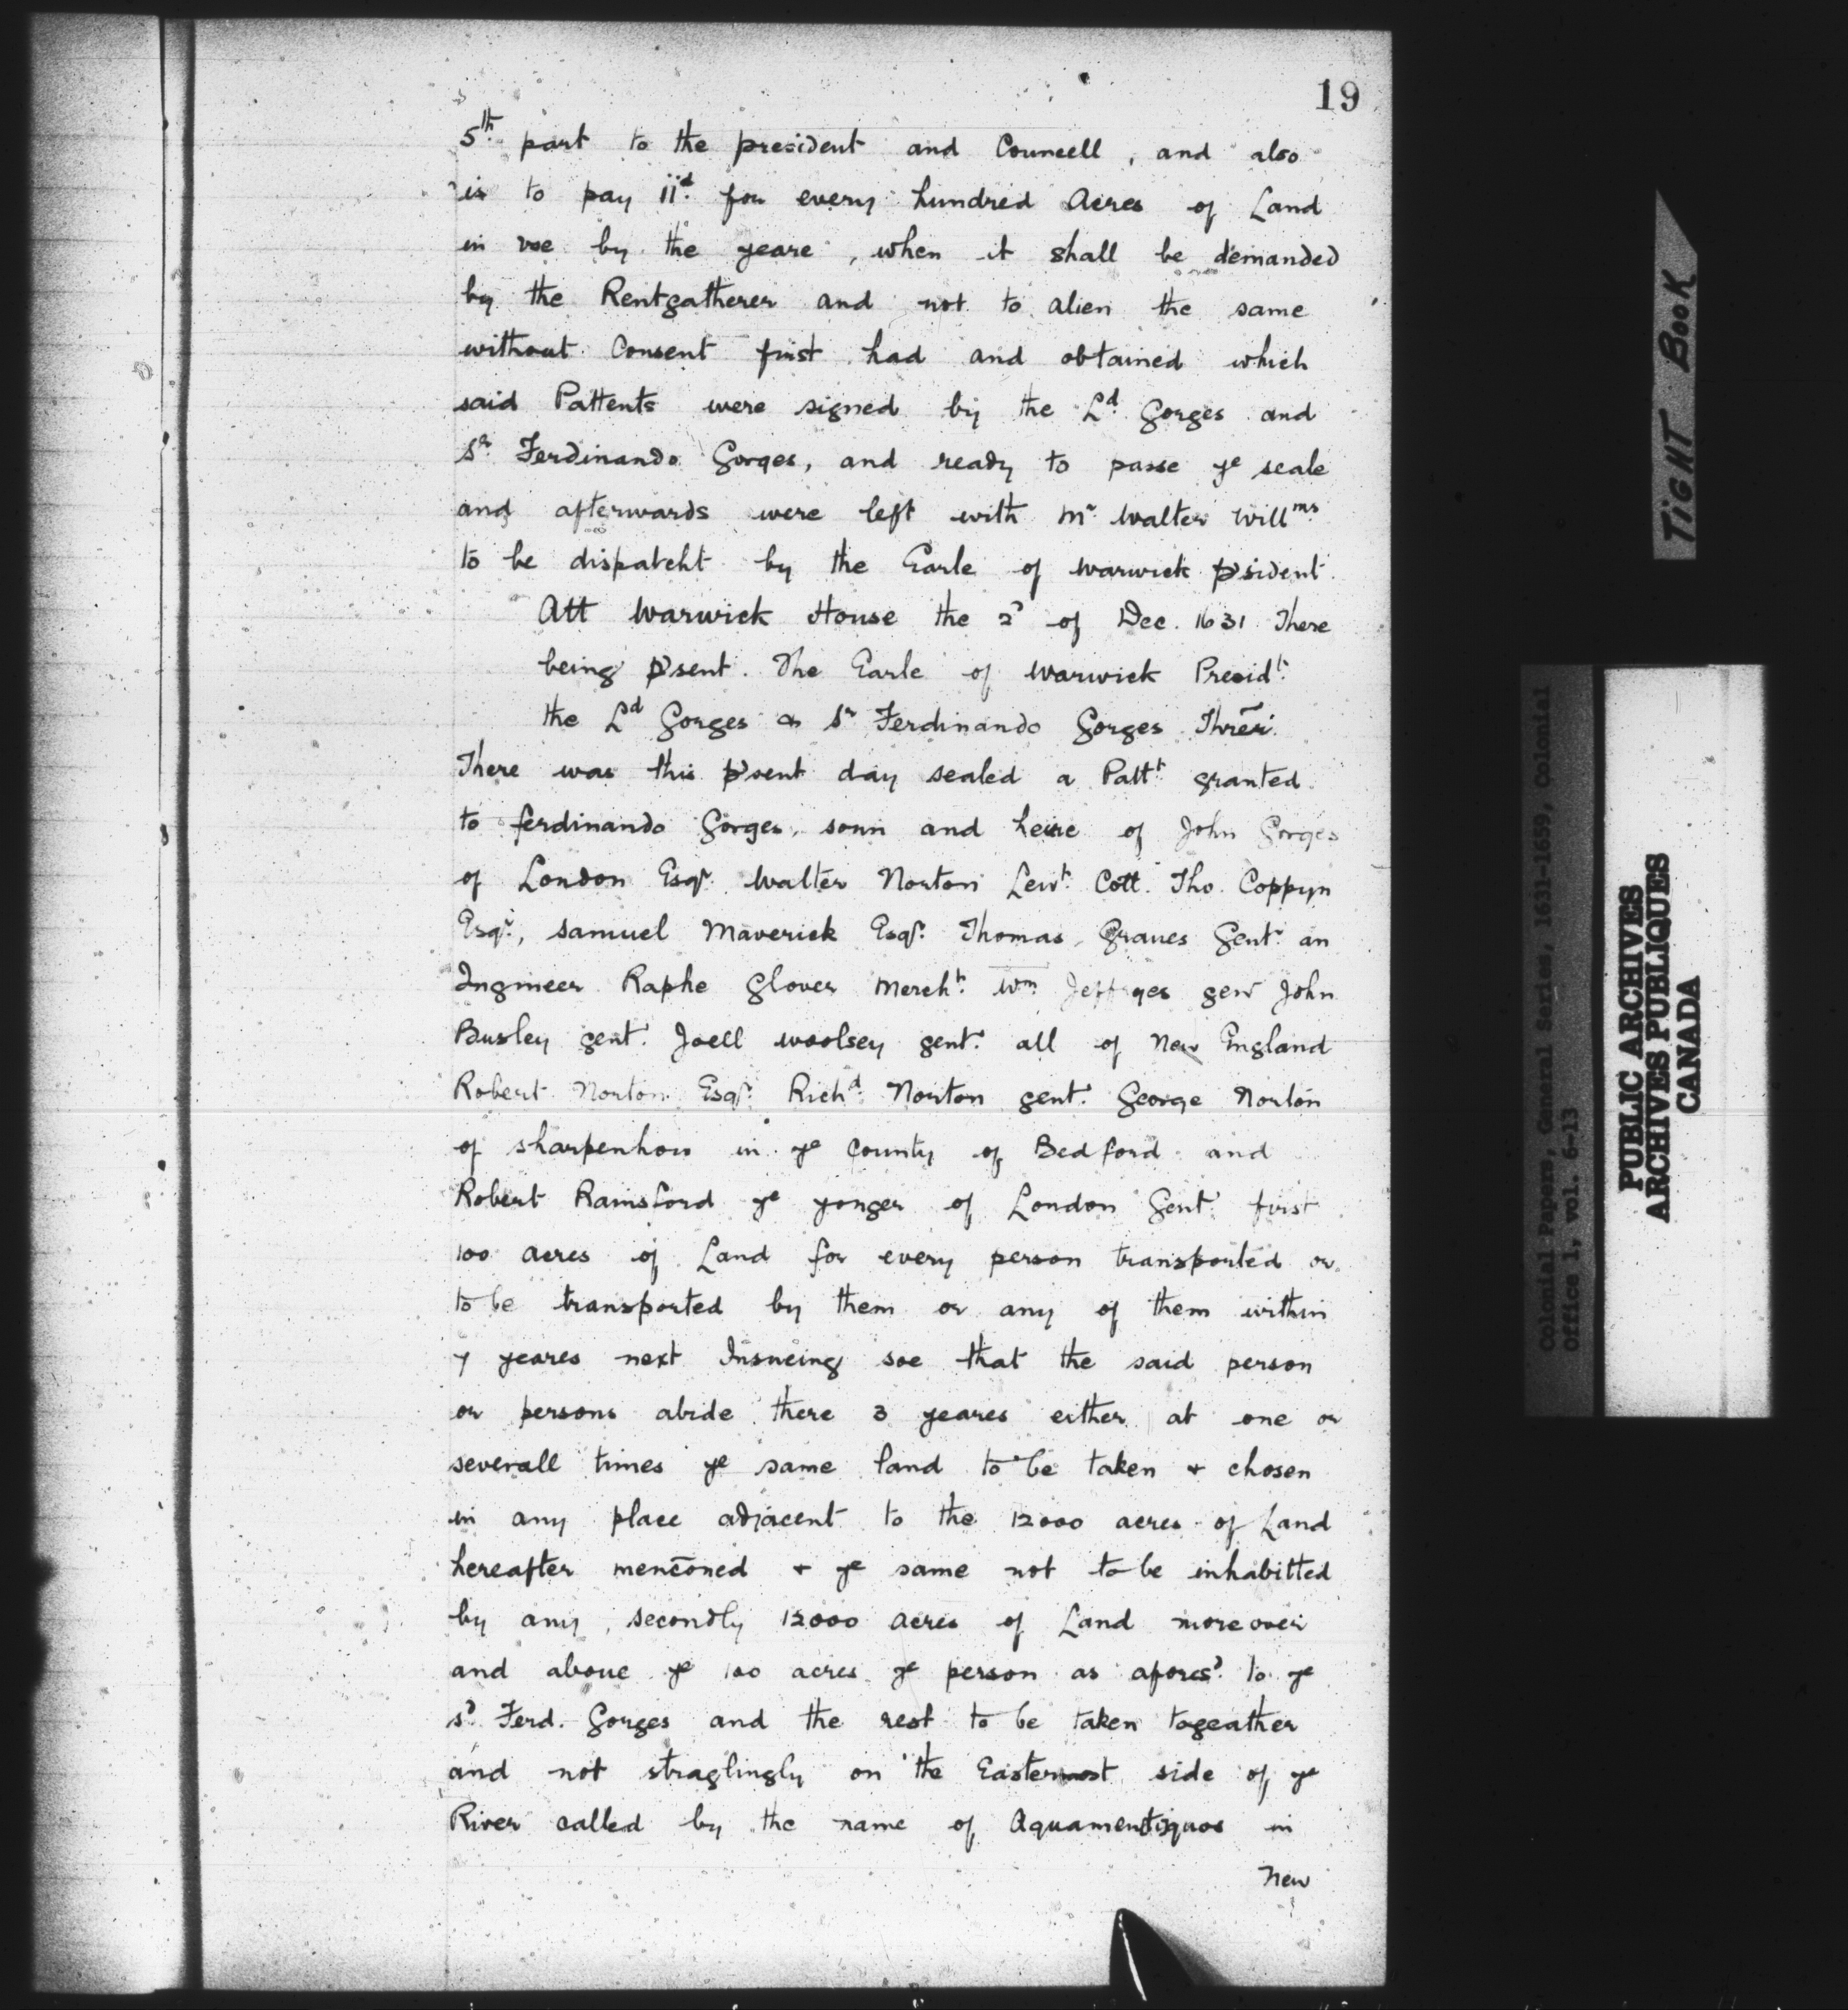 19
5th part to the president and Councell, and also
is to pay iid for every hundred Acres of Land
in vse by the yeare, when it shall be demanded
by the Rentgatherer and not to alien the same
without Consent first had and obtained which
said Pattents were signed by the Ld Gorges and
Sr Ferdinando Gorges, and ready to passe ye seale
and afterwards were left with Mr Walter Willms
to be dispatcht by the Earle of Warwick p'sident.
Att Warwick House the 2d of Dec. 1631 There
being p'sent. The Earle of Warwick Presidt
the Ld Gorges & Sr Ferdinando Gorges Threr.
There was this p'sent day sealed a Pattt granted
to ferdinando Gorges, sonn and heire of John Gorges
of London Esqr Walter Norton Lewt Coll. Tho. Coppyn
Esqr, Samuel Maverick Esqr Thomas Graues Gent. an
Ingineer Raphe Glover Mercht Wm Jeffryes gent John
Busley gent. Joell Woolsey gent. all of New England
Robert Norton Esqr Richd Norton gent. George Norton
of sharpenhow in ye County of Bedford and
Robert Rainsford ye yonger of London Gent. first
100 acres of Land for every person transported or
to be transported by them or any of them within
7 yeares next Insueing soe that the said person
or persons abide there 3 yeares either at one or
severall times ye same land to be taken & chosen
in any place adjacent to the 12000 acres of Land
hereafter mencōned & ye same not to be inhabitted
by any, secondly 12000 acres of Land more over
and aboue ye 100 acres ye person as aforesd to ye
sd Ferd. Gorges and the rest to be taken togeather
and not straglingly on the Eastermost side of ye
River called by the name of Aquamentiquos in
New
TIGHT BOOK
Colonial Papers, General Series, 1631-1659, Colonial
Office 1, vol. 6-13
PUBLIC ARCHIVES
ARCHIVES PUBLIQUES
CANADA